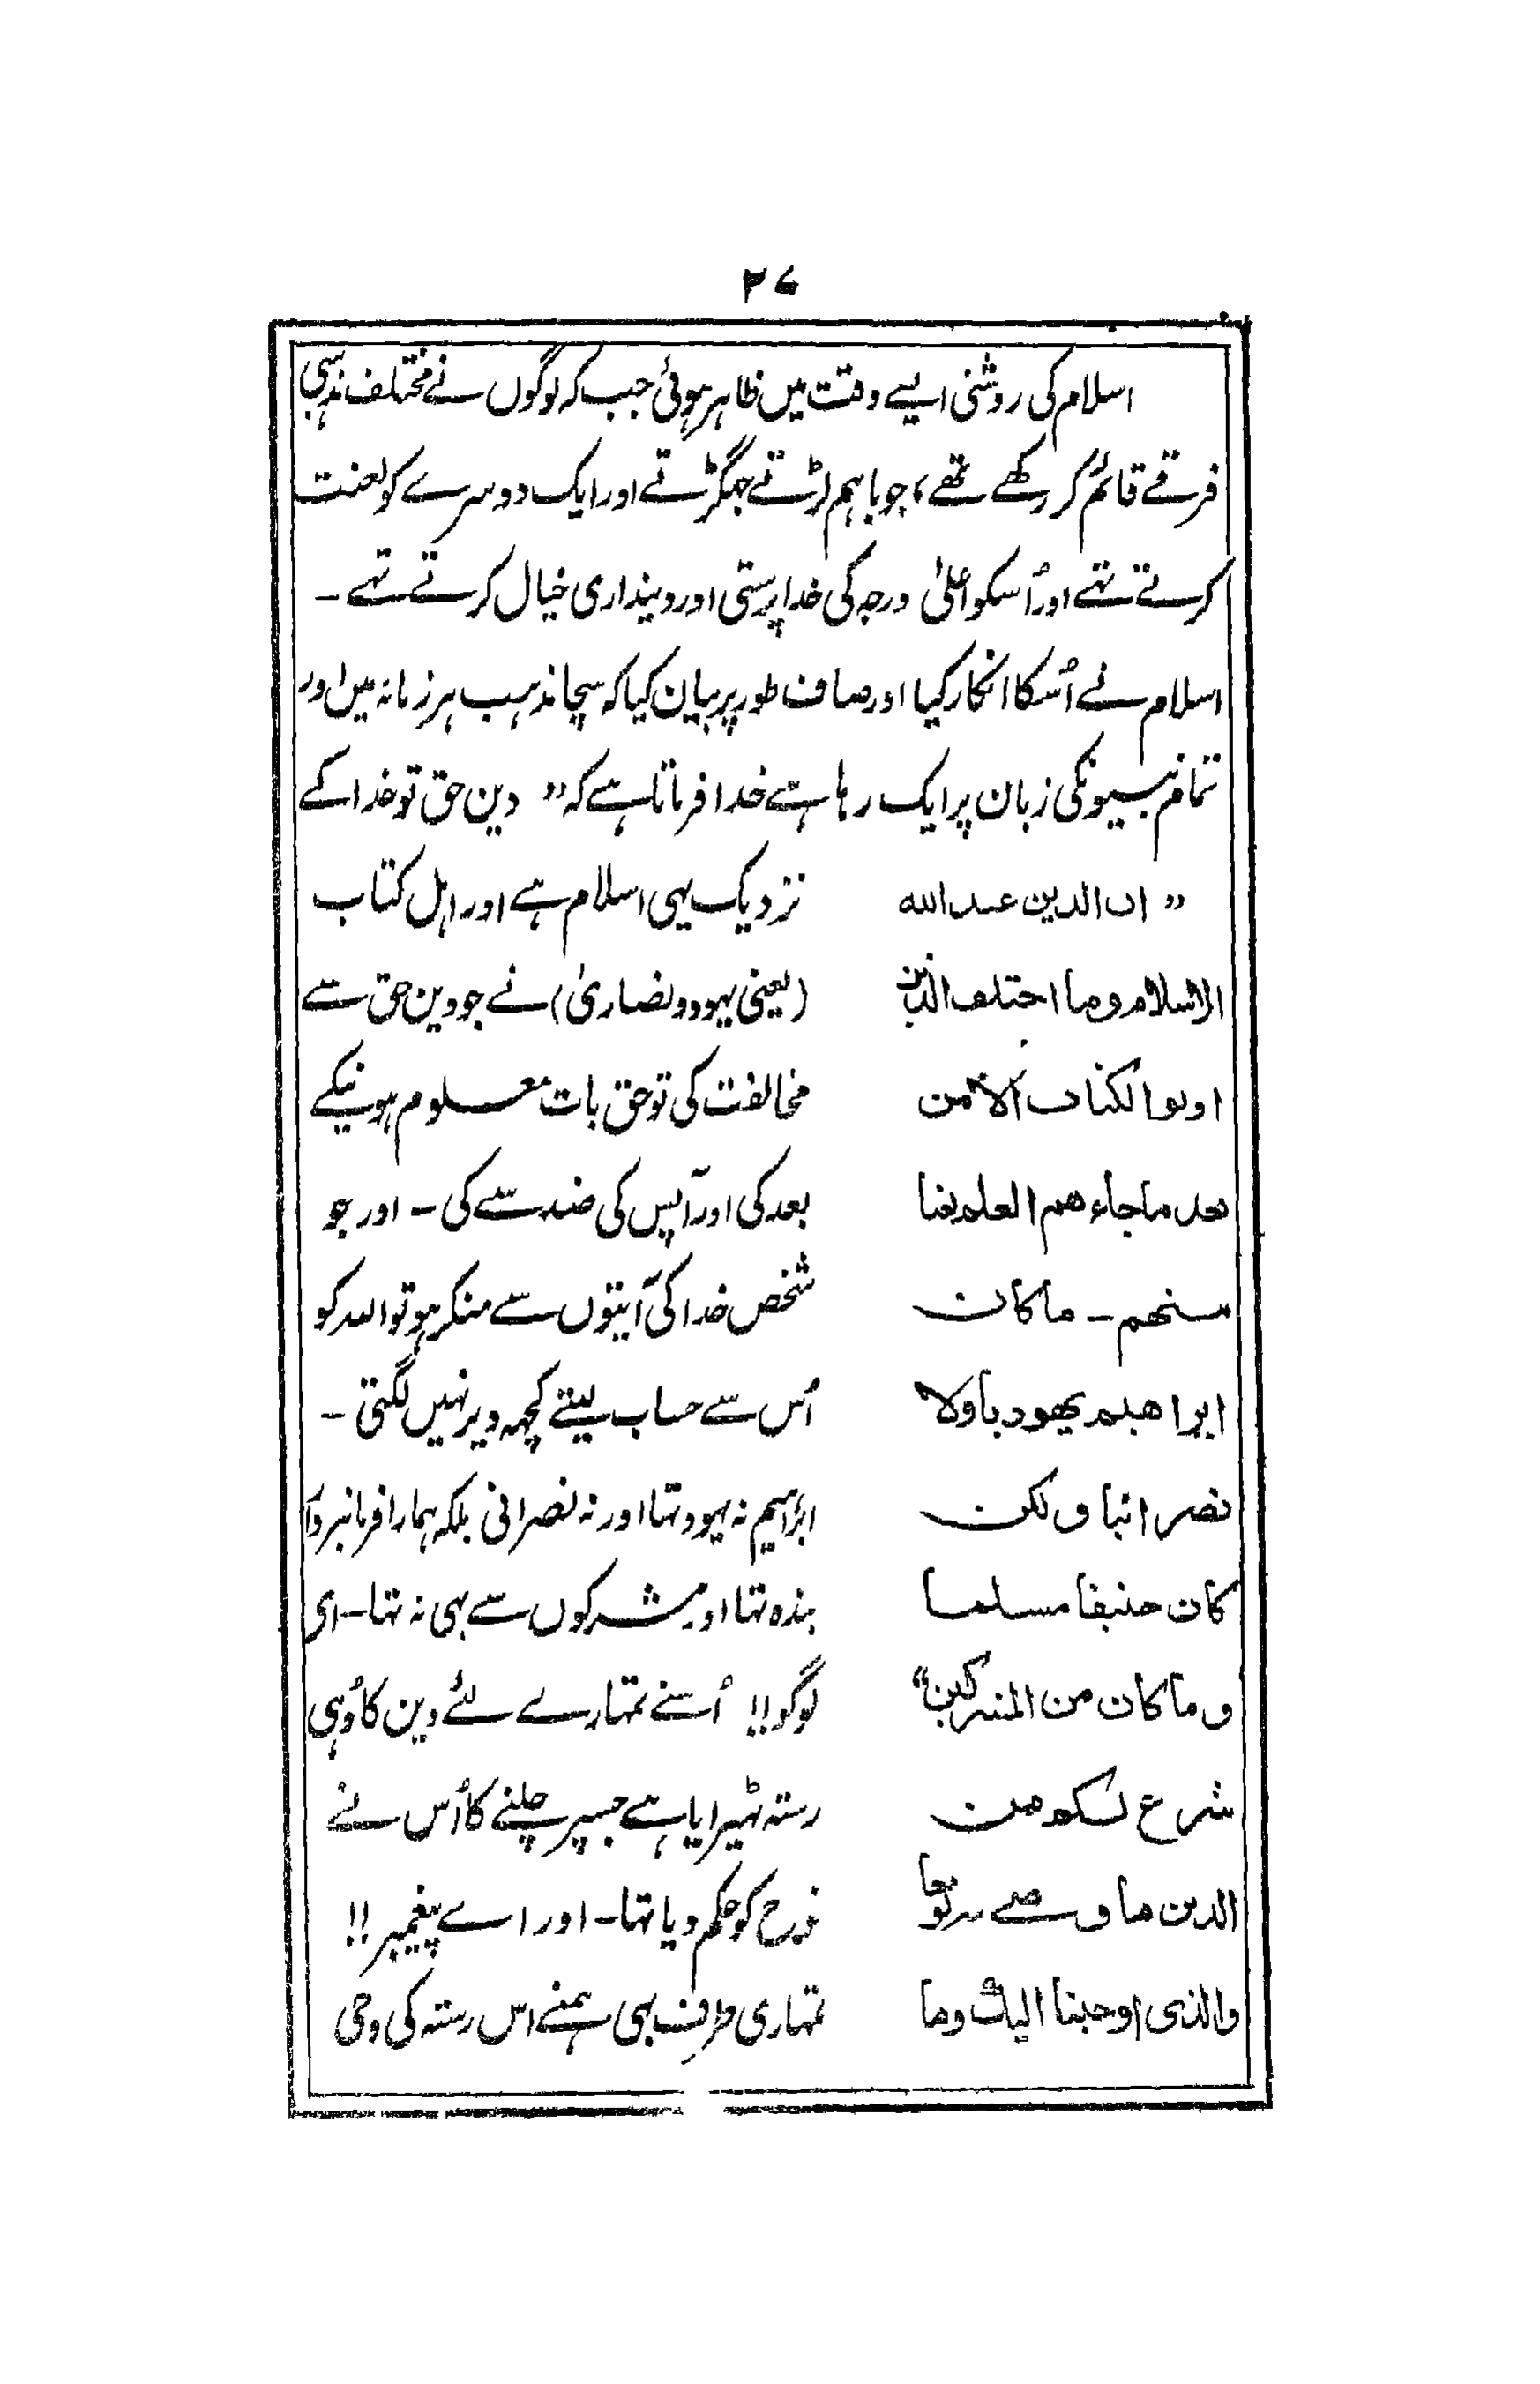 ۳۷
اسلام کی روشنی ایسے وقت میں ظاہر ہوئی جب کہ لوگوں نے مختلف مذہبی
فرقے قائم کر رکھے تھے، جو باہم لڑتے جھگڑتے اور ایک دوسرے کو لعنت
کرتے تہے اور اُسکو اعلیٰ درجہ کی خدا پرستی اور دینداری خیال کرتے تہے ۔
اسلام نے اُسکا انکار کیا اور صاف طور پر بیان کیا کہ سچا مذہب ہر زمانہ میں اور
تمام نبیونکی زبان پر ایک رہا ہے خدا فرماتا ہے کہ " دین حق تو خدا کے
" ان الدین عند الله
الاسلام وما اختلف الذین
اوتوا الکتاب الا من
بعد ما جاءهم العلم بغیا
منهم ۔ ما کان
ابراهیم یهودیا ولا
نصرانیا ولکن
کان حنیفا مسلما
وما کان من المشرکین"
شرع لکم من
الدین ما وصے به نوحا
والذی اوحینا الیك وما
نزدیک یہی اسلام ہے اور اہل کتاب
(یعنی یہود و نصاریٰ) نے جو دین حق سے
مخالفت کی تو حق بات معلوم ہونیکے
بعد کی اور آپس کی ضد سے کی ۔ اور جو
شخص خدا کی آیتوں سے منکر ہو تو اللہ کو
اُس سے حساب لیتے کچہہ دیر نہیں لگتی ۔
ابراہیم نہ یہود تہا اور نہ نصرانی بلکہ ہمارا فرمانبردار
بندہ تہا اور مشرکوں سے بہی نہ تہا ۔ ای
لوگو !! اُسنے تمہارے لئے دین کا وُہی
رستہ ٹہیرایا ہے جسپر چلنے کا اُس نے
نوح کو حکم دیا تہا ۔ اور اے پیغمبر !!
تمہاری طرف بہی ہمنے اس رستہ کی وحی